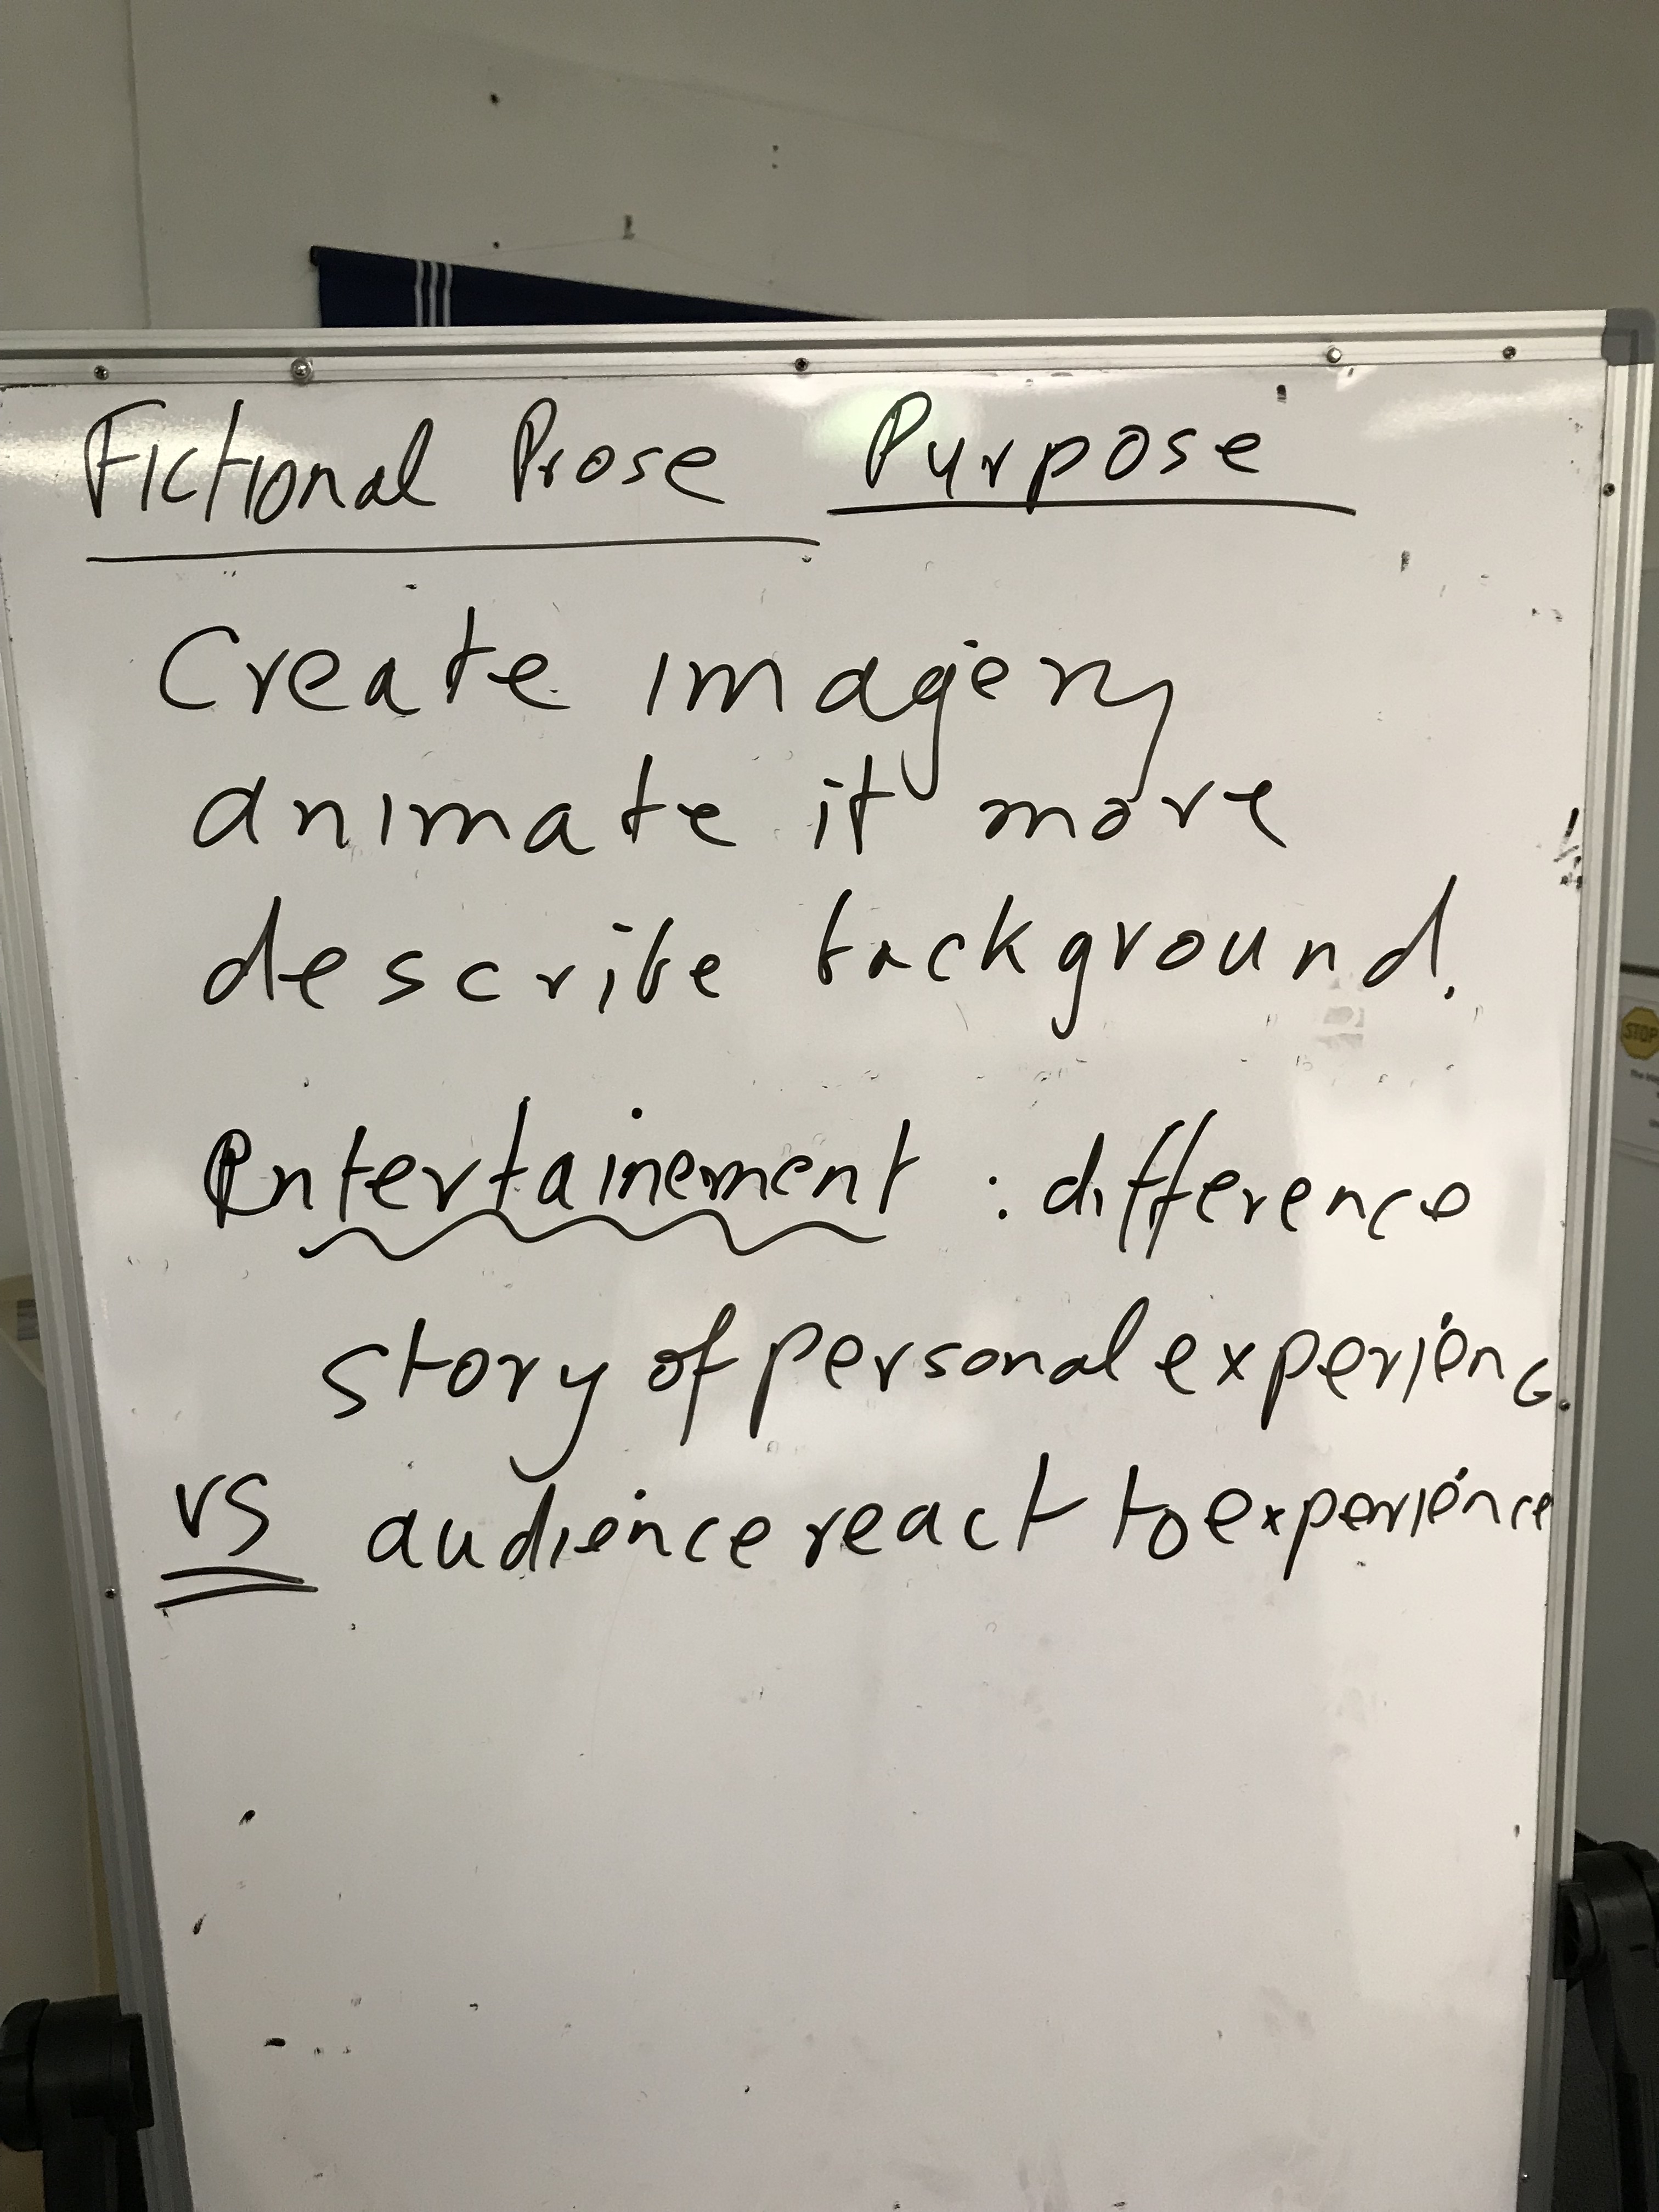 Fictional Prose Purpose
Create imagery
animate it more
describe background.
Entertainement : difference
story of personal experienc
vs audience react to experience
STOP